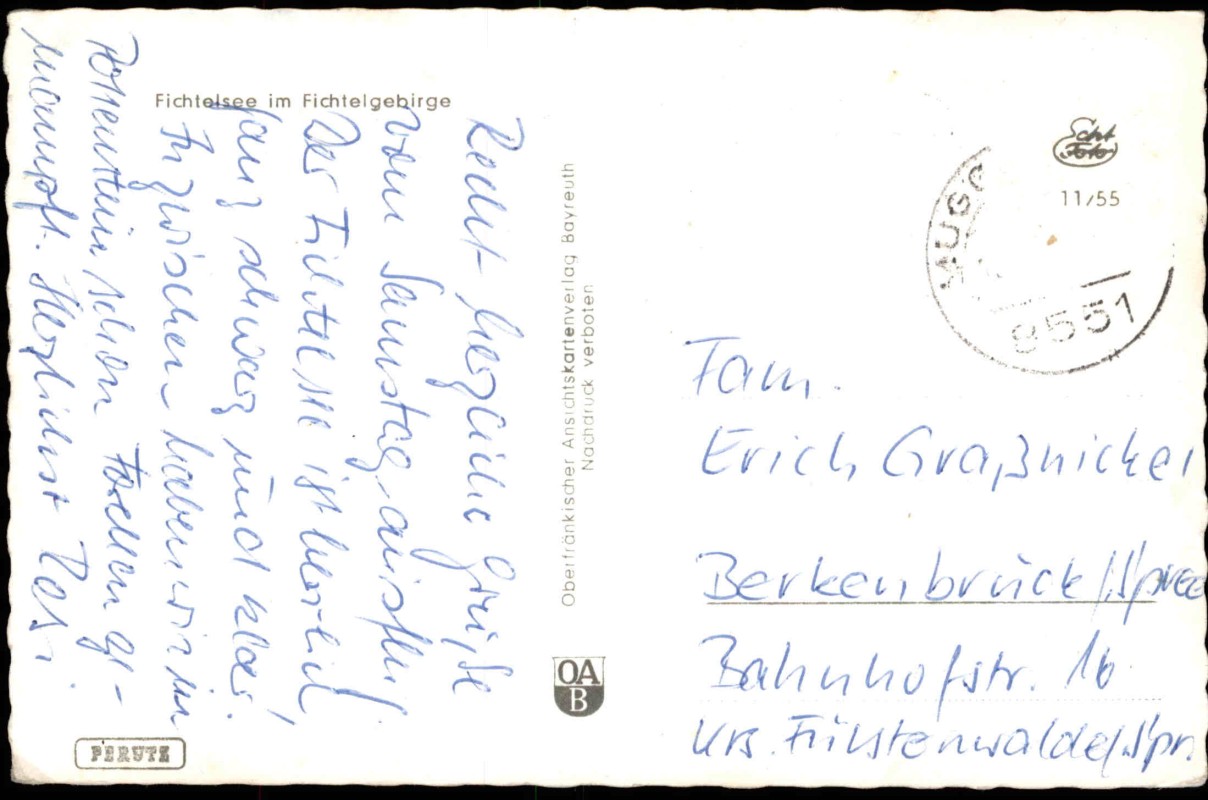 Fichtelsee im Fichtelgebirge
Recht herzliche Grüße
vom Samstagausflug.
Der Fichtelsee ist herrlich,
ganz schwarz und klar!
Inzwischen haben wir in
Pottenstein schon Forellen ge-
mampft. Herzlichst
Oberfränkischer Ansichtskartenverlag Bayreuth
Nachdruck verboten
OA
B
PERUTZ
Echt
Foto
11/55
8551
Fam.
Erich Graßnickel
Berkenbrück/Spree
Bahnhofstr. 16
Krs. Fürstenwalde/Spr.